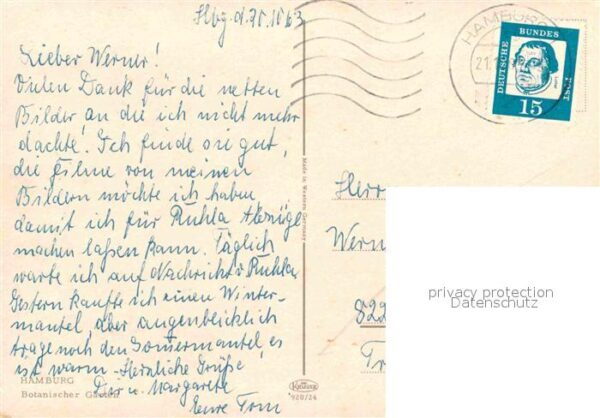 Hbg. d. 20.10.63
Lieber Werner!
Vielen Dank für die netten
Bilder, an die ich nicht mehr
dachte! Ich finde sie gut,
die Filme von meinen
Bildern möchte ich haben,
damit ich für Ruhla Abzüge
machen laßen kann. Täglich
warte ich auf Nachricht v. Ruhla.
Gestern kaufte ich einen Winter-
mantel, aber augenblicklich
trage noch den Sommermantel, es
ist warm - Herzliche Grüße
Dir u. Margarete
Eure
HAMBURG
Botanischer Garten
Made in Western Germany
Krüger
920/24
HAMBURG
21.
DEUTSCHE
BUNDES
POST
15
Herr
Wern
822
privacy protection
Datenschutz